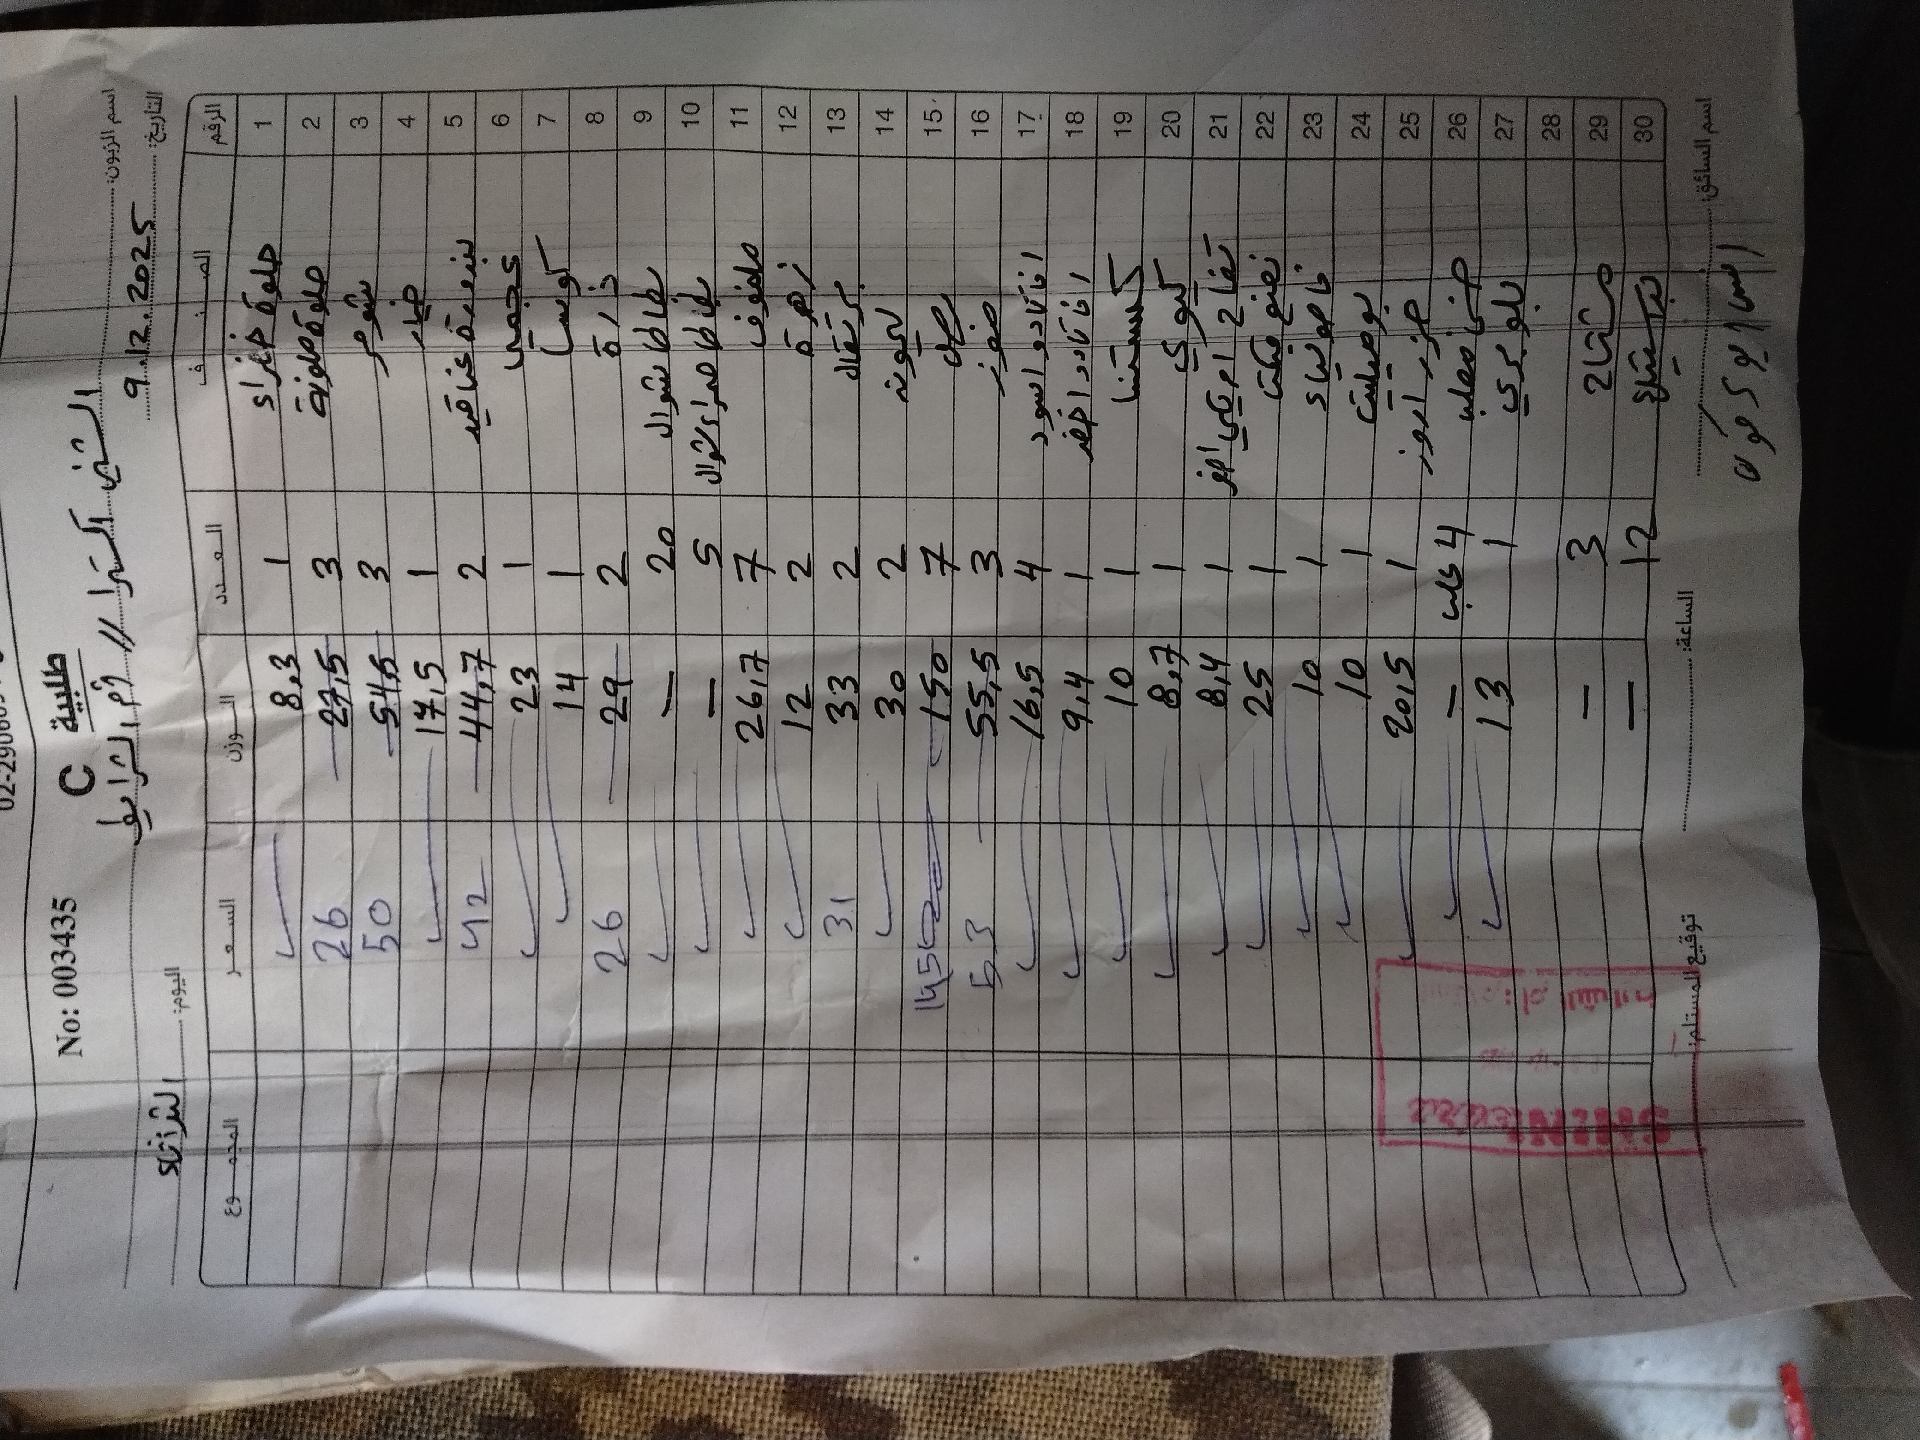 02-290
No: 003435
C طلبية
اسم الزبون: الشني اكسترا // رام الله
التاريخ: 9.12.2025 اليوم: الثلاثاء
الرقم الصنف العدد الوزن السعر المجموع
1 حلوة خضراء 1 8,3
2 حلوة ملونة 3 27,5 26
3 شومر 3 54,5 50
4 خيار 1 17,5
5 بندورة عناقيد 2 44,7 42
6 عجمي 1 23
7 كوسا 1 14
8 ذرة 2 29 26
9 بطاطا شوال 20 —
10 بطاطا حمراء شوال 5 —
11 ملفوف 7 26,7
12 زهرة 2 12
13 برتقال 2 33 31
14 ليمون 2 30
15 بصل 7 150 145
16 موز 3 55,5 53
17 افوكادو اسود 4 16,5
18 افوكادو اخضر 1 9,4
19 كستنا 1 10
20 كيوي 1 8,7
21 تفاح امريكي اخضر 1 8,4
22 1 25
23 فاصولياء 1 10
24 1 10
25 1 20,5
26 4 علب —
27 1 13
28
29 مشتاح 3 —
30 12 —
اسم السائق: الساعة: توقيع المستلم: